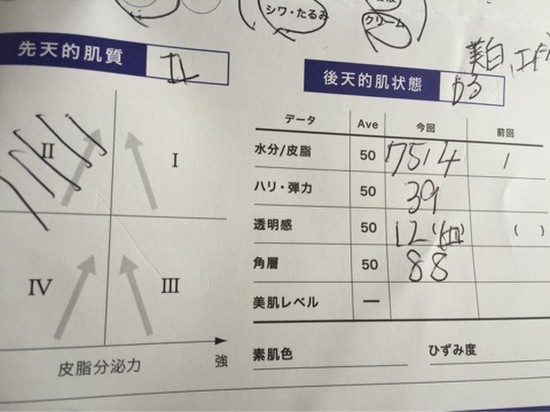 シワ・たるみ
クリーム
美白
先天的肌質 II
後天的肌状態
データ Ave 今回 前回
水分/皮脂 50 75 14 /
ハリ・弾力 50 39
透明感 50 12 ( )
角層 50 88
美肌レベル —
素肌色 ひずみ度
II I
IV III
皮脂分泌力 強